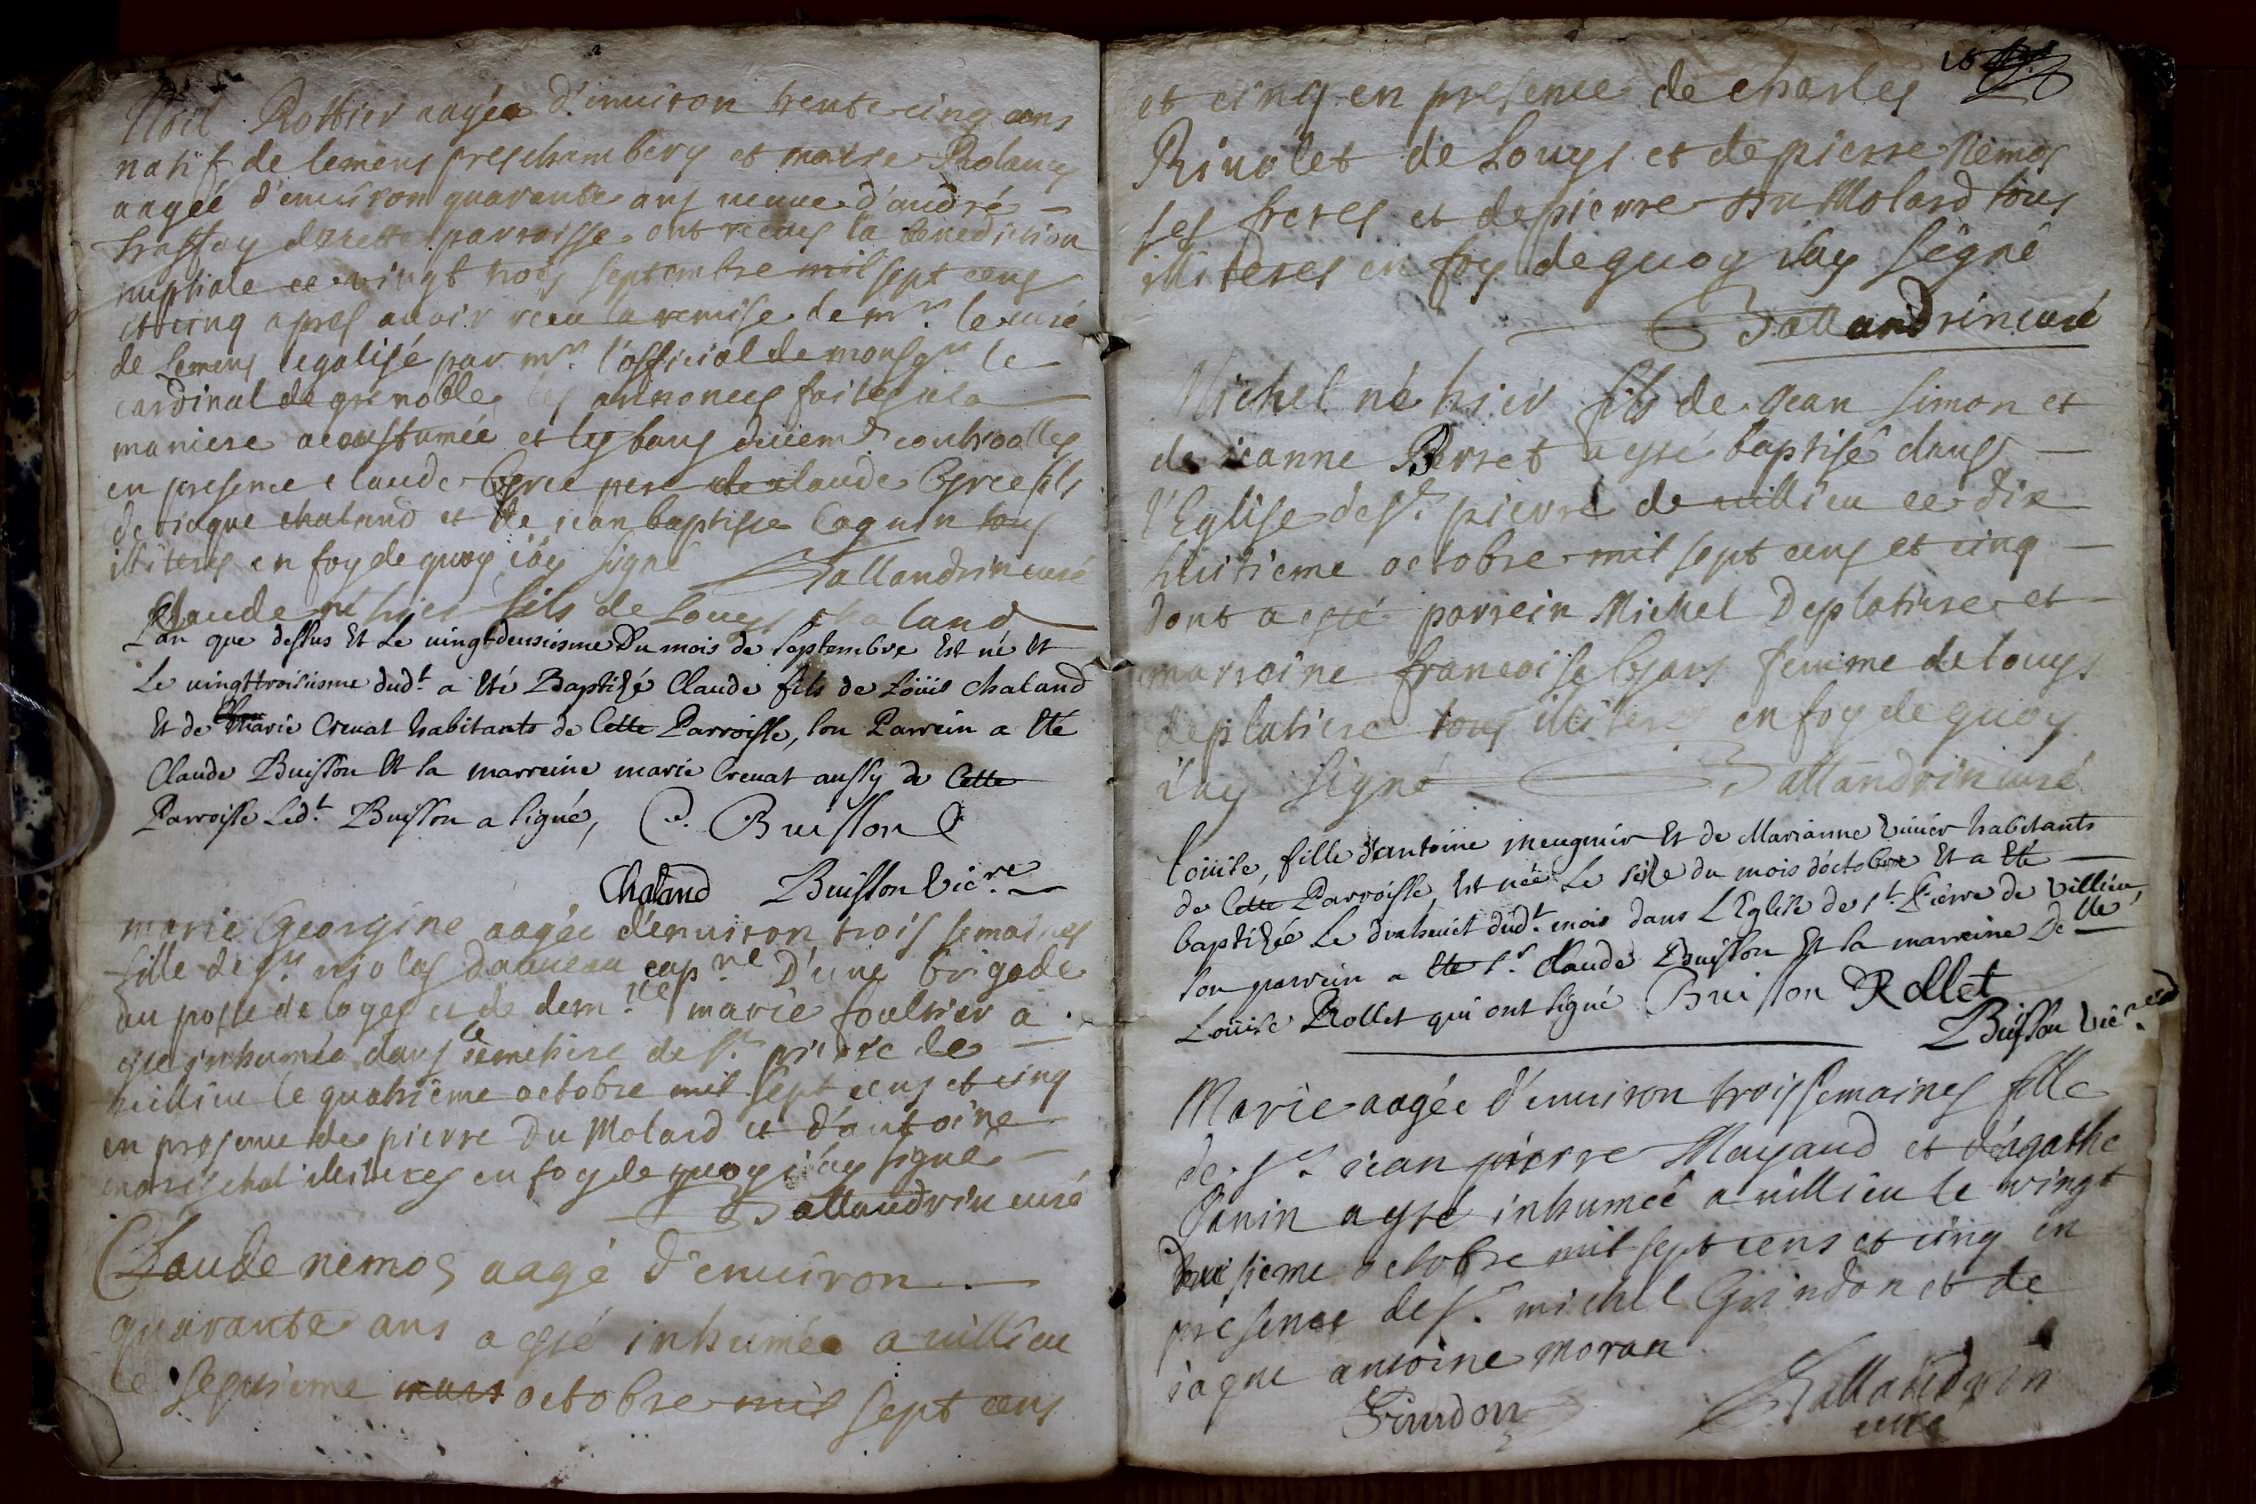 Noel Rottier aagée d'enuiron trente cinq ans
natif de lemens pres chambery et marie Rolans
aagée d'enuiron quarante ans ueuue d'andré
de cette parroisse ont receus la benediction
nuptiale ce vingt trois septembre mil sept cens
et cinq apres auoir receu la remise de mr. le curé
de Lemens legalisé par mr. l'official de monsgr le
cardinal de grenoble les annonces faites a la
maniere acoustumée et les bans duëmt. controolles
en presence claude Cyree pere de claude Cyree fils
de iaque chaland et de iean baptiste Coquin tous
illiteres en foy de quoy i'ay signé Ballandrin curé
Claude né hier fils de Louys chaland
L'an que dessus Et Le uingtdeuxiesme Du mois de Septembre Est né Et
Le uingttroisiesme dudt. a Eté Baptizé Claude fils de Loüis Chaland
Et de Marie Creuat habitants de Cette Parroisse, son Parrein a Eté
Claude Buisson Et la marreine marie Creuat aussy de Cette
Parroisse Ledt. Buisson a signé, C. Buisson
Chaland Buisson Vicre.
marie Georgine aagée d'enuiron trois semaines
fille de sr nicolas Daaneau capne D'une brigade
du poste de loyes et de demlle marie foulnier a
esté inhumée dans le cemetiere de st. pierre de
uillieu le quatrieme octobre mil sept cens et cinq
en presence de pierre Du Molard et d'antoine
mareschal illiteres en foy de quoy i'ay signé
Ballandrin curé
Claude nemos aagé d'enuiron
quarante ans a esté inhumée a uillieu
le sepzieme octobre mil sept cens
et cinq en presence de charles
Riuolet de Louys et de pierre nemos
ses freres et de pierre Du Molard tous
illiteres en foy de quoy i'ay signé
Ballandrin curé
Michel né hier fils de Jean Simon et
de ieanne Perret a esté baptisé dans
l'Eglise de st. pierre de uillieu ce dix
huitieme octobre mil sept cens et cinq
dont a esté parrein Michel Deplatiere et
marroine francoise Cyars femme de louys
deplatiere tous illiteres en foy de quoy
i'ay signé Ballandrin curé
Loüise, fille d'antoine meugnier Et de Marianne Viuier habitants
de Cette Parroisse, Est née Le seize du mois d'octobre Et a Eté
baptizée Le dixhuict dudt. mois dans L'Eglise de st. Pierre de Villieu,
son parrein a Eté sr. Claude Buisson Et la marreine Delle
Loüise Rollet qui ont signé Buisson Rollet
Buisson Vicre
Marie aagée d'enuiron trois semaines fille
de sr. iean pierre Mayaud et d'agathe
Janin a esté inhumée a uillieu le vingt
octobre mil sept cens et cinq en
presence de sr. michel Girindon et de
iaque antoine moran
Ballandrin
curé